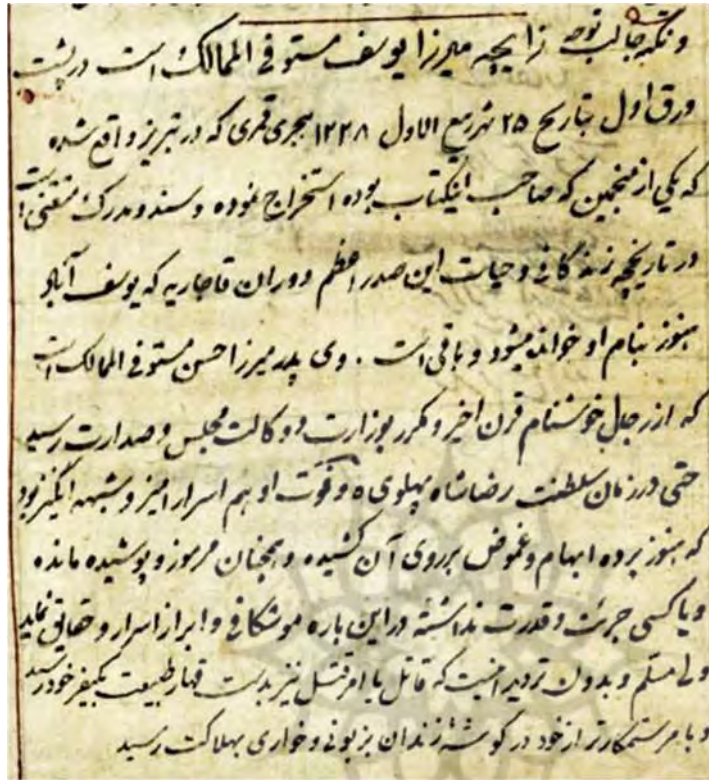 و نکته جالب توجه زایچه میرزا یوسف مستوفی الممالک است در پشت
ورق اول بتاریخ ۲۵ شهر ربیع الاول ۱۲۲۸ هجری قمری که در تبریز واقع شده
که یکی از منجمین که صاحب اینکتاب بوده استخراج نموده و سند و مدرک متقنی است
در تاریخچه زندگانی و حیات این صدر اعظم دوران قاجاریه که یوسف آباد
هنوز بنام او خوانده میشود و باقی است . وی پدر میرزا حسن مستوفی الممالک است
که از رجال خوشنام قرن اخیر و مکرر بوزارت و وکالت مجلس و صدارت رسید
حتی در زمان سلطنت رضاشاه پهلوی و فوت او هم اسرار امیز و شبهه انگیز بود
که هنوز پرده ابهام و غموض بر روی آن کشیده و همچنان مرموز و پوشیده مانده
و یا کسی جرئت و قدرت نداشته در این باره موشکافی و ابراز اسرار و حقایق نماید
ولی مسلم و بدون تردید اینست که قاتل یا امر قتل نیز بدست قهار طبیعت بکیفر خود رسید
و با مر ستمکارتر از خود در گوشهٔ زندان بزبونی و خواری بهلاکت رسید